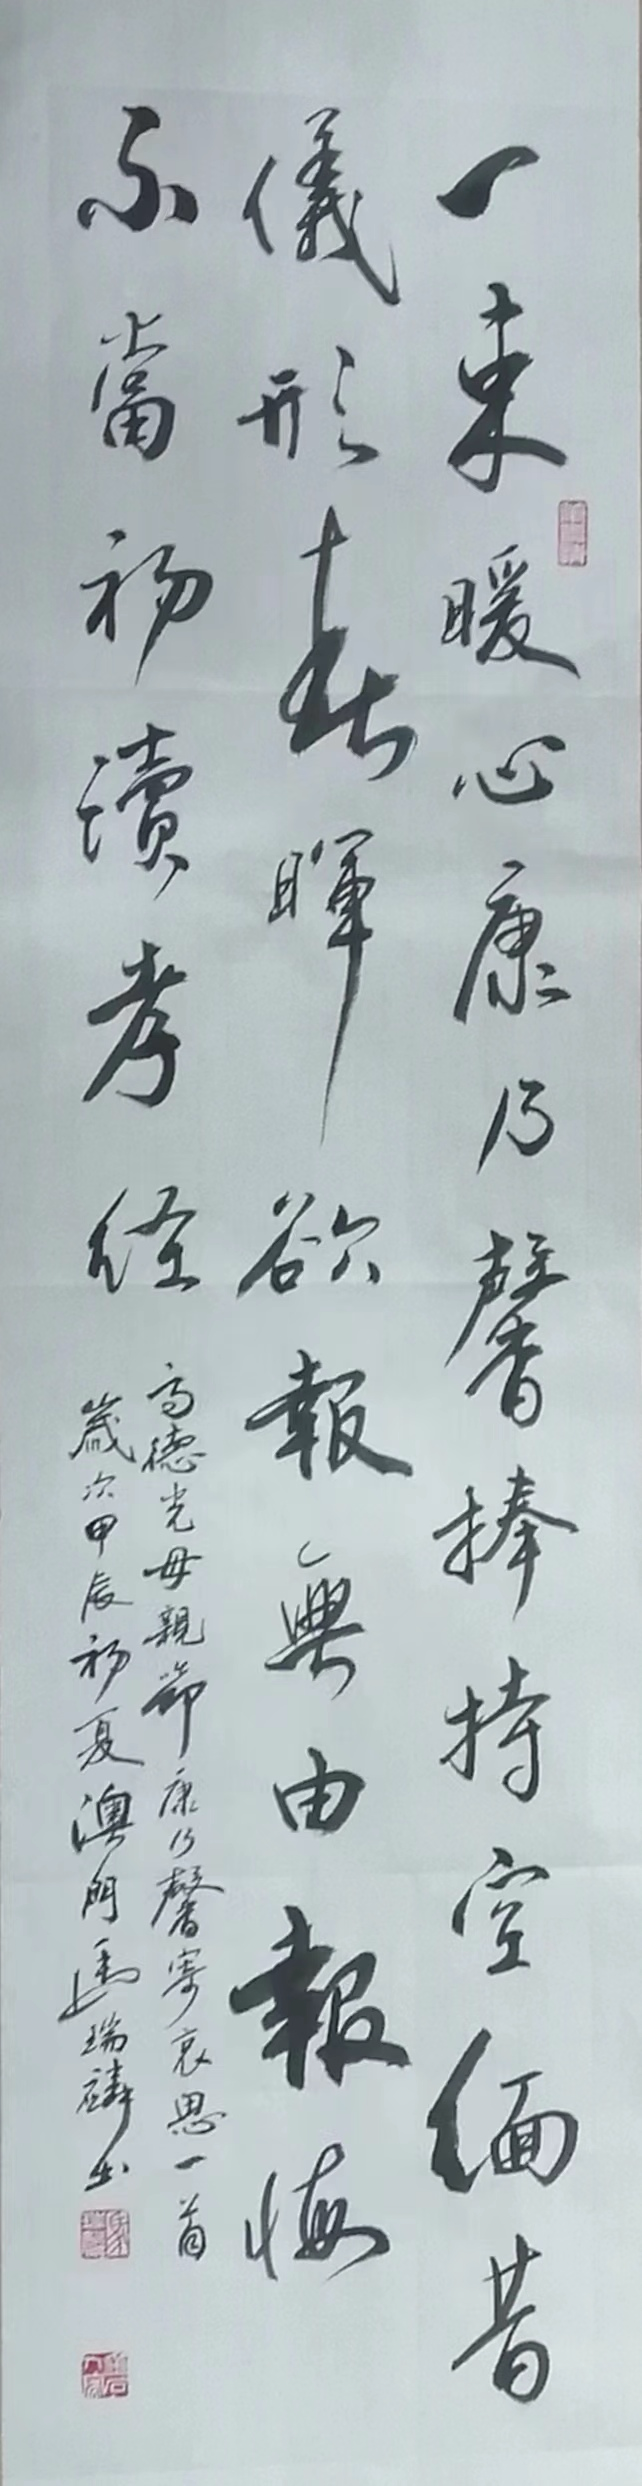 一束暖心康乃馨捧持空緬昔
儀形春暉欲報無由報悔
不當初讀孝經
高德光母親節康乃馨寄哀思一首
歲次甲辰初夏澳門馬瑞麟书